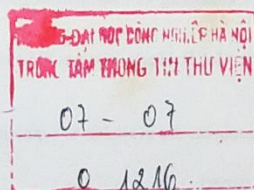 G ĐẠI HỌC CÔNG NGHIỆP HÀ NỘI
TRUNG TÂM THÔNG TIN THƯ VIỆN
07 - 07
0 1216